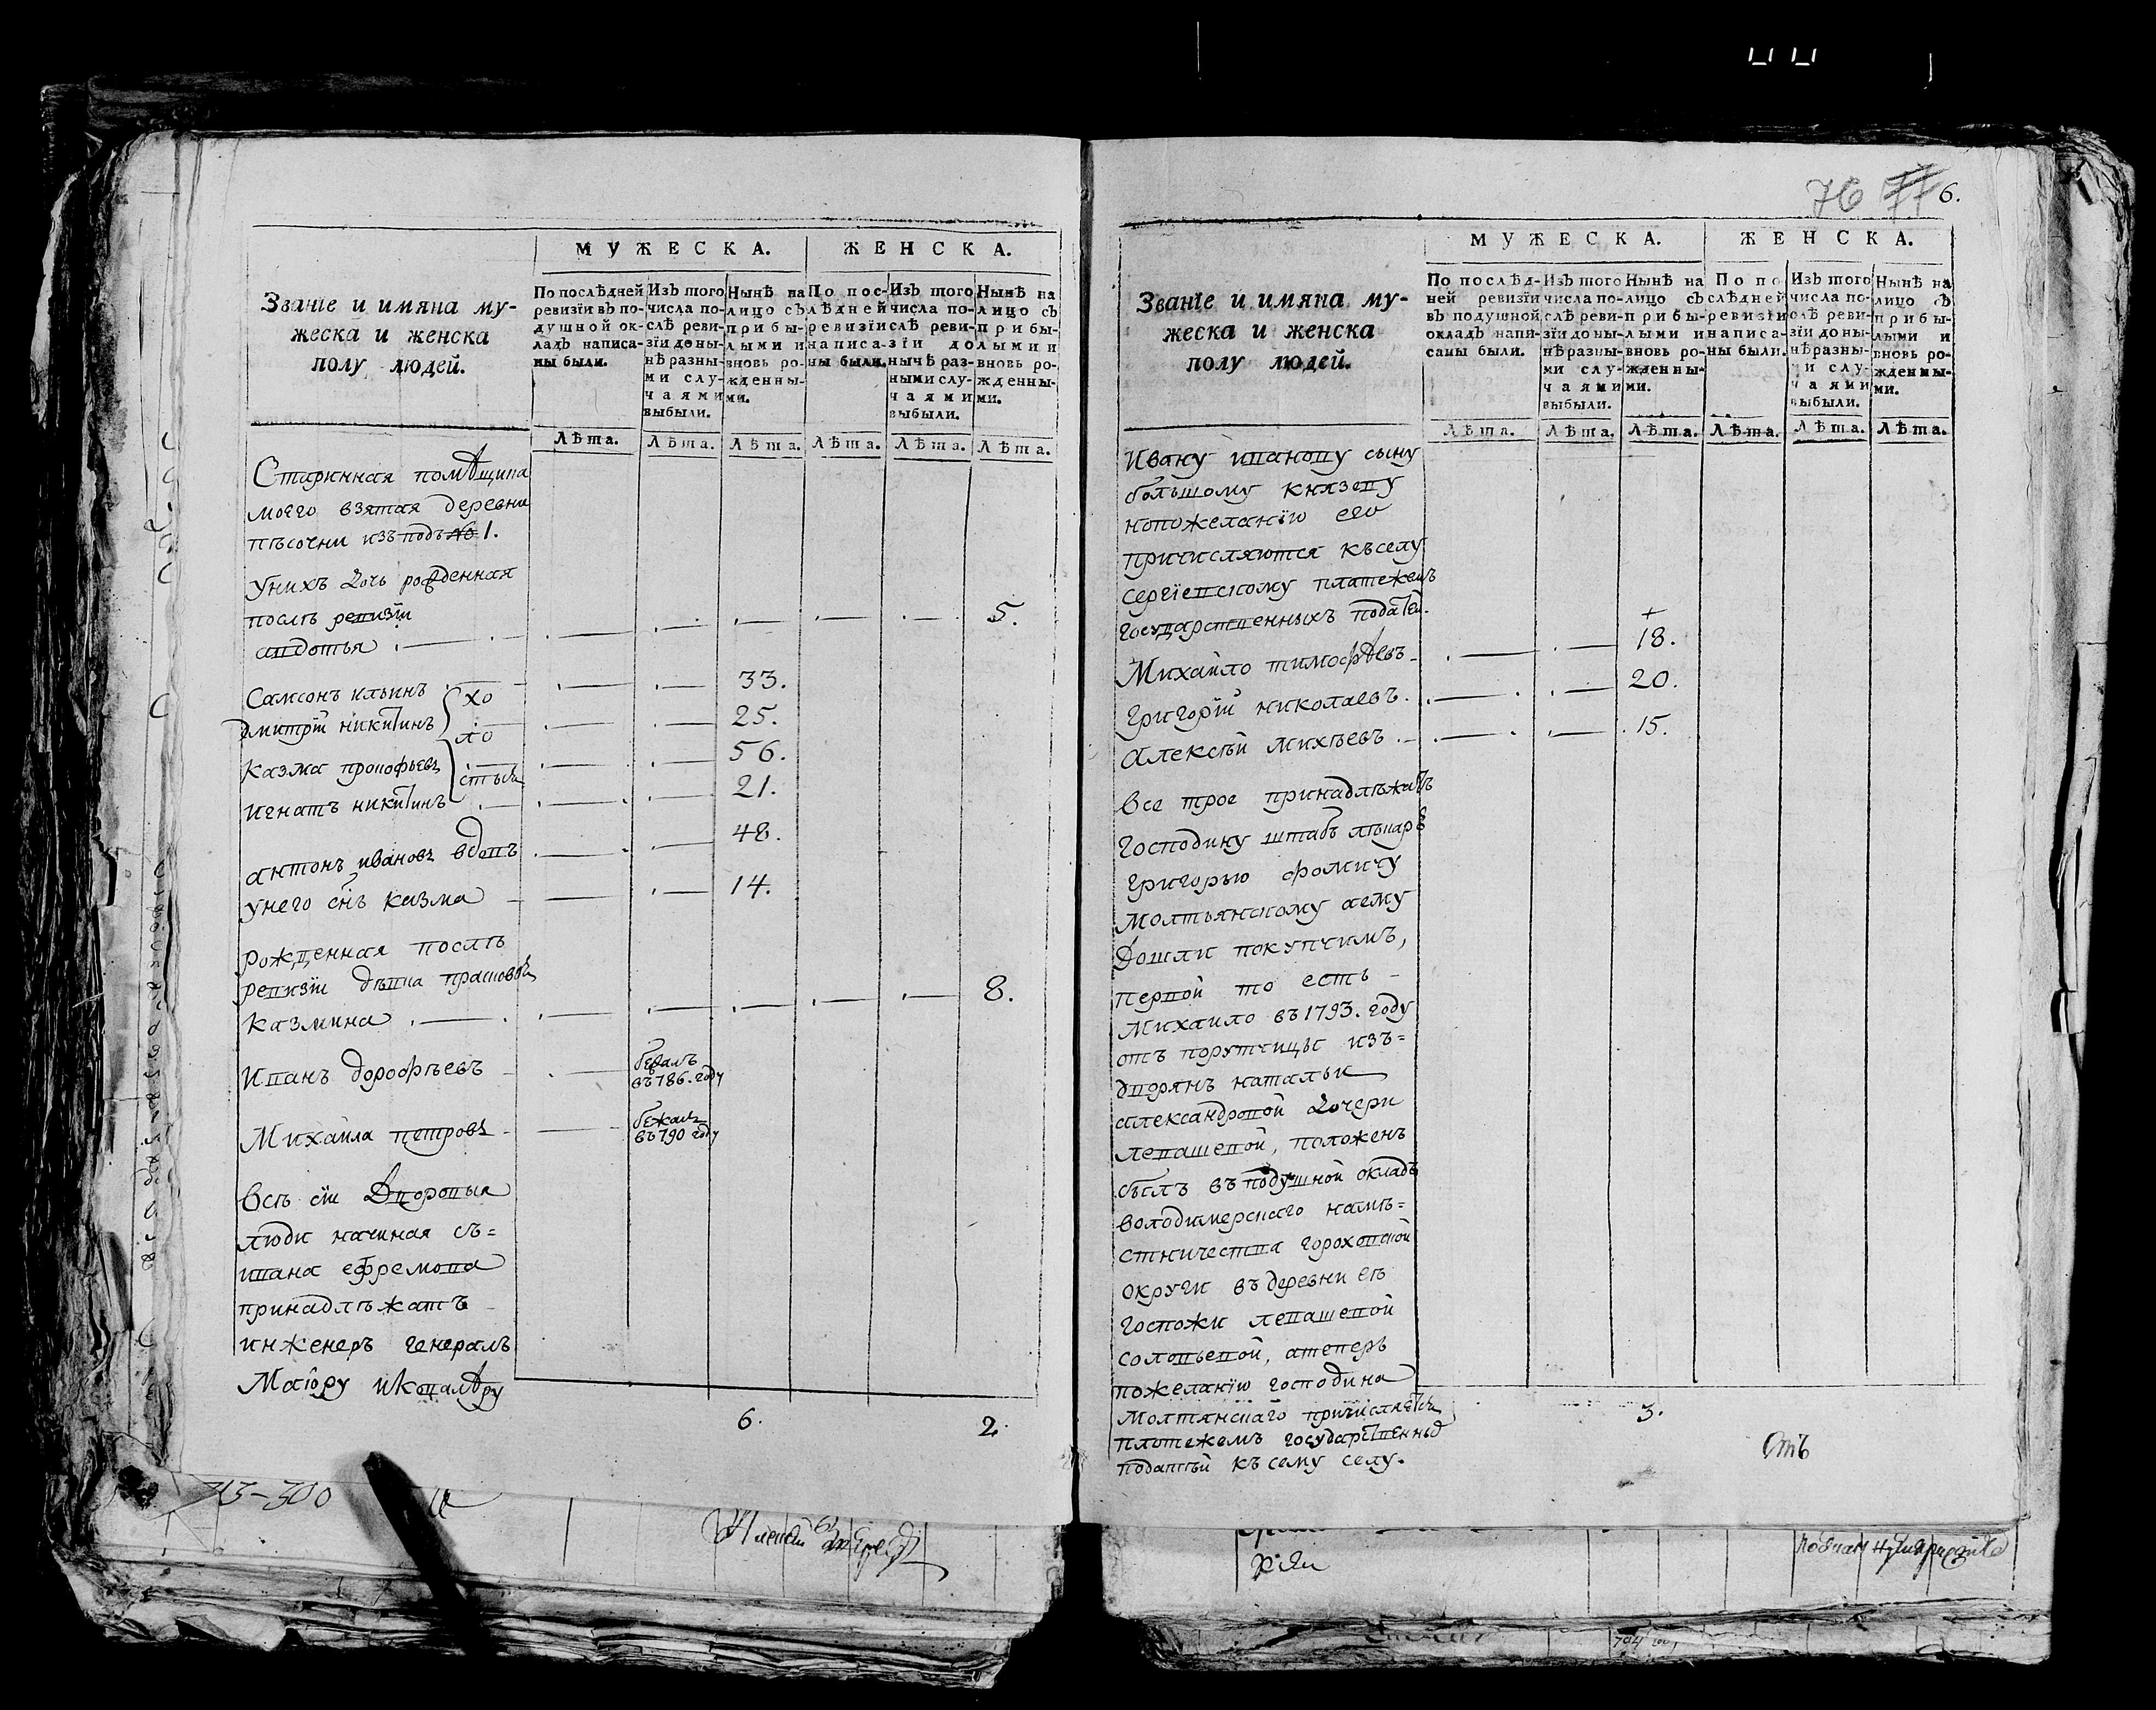 МУЖЕСКА. ЖЕНСКА.
Званїе и имяна му-
жеска и женска
полу людей.
По послѣдней ревизїи въ по-душной ок-ладъ написа-ны были.
Изъ того числа по-слѣ реви-зїи доны-нѣ разны-ми слу-чаями выбыли.
Нынѣ на лицо съ прибы-лыми и вновь ро-жденны-ми.
По пос-лѣдней ревизїи написа-ны были.
Изъ того числа по-слѣ реви-зїи до нычѣ раз-ными слу-чаями выбыли.
Нынѣ на лицо съ прибы-лыми и вновь ро-жденны-ми.
Лѣта. Лѣта. Лѣта. Лѣта. Лѣта. Лѣта.
Старинная помѣщика
моего взятая деревни
пѣсочни изъ подъ № 1.
Унихъ дочь рожденная
послѣ ревизїи
авдотья 5.
Самсонъ ильинъ 33.
Дмитрїй никитинъ 25.
хо
ло
стыя
Казма прокофьевъ 56.
Игнатъ никитинъ 21.
антонъ ивановъ вдовъ 48.
унего снъ казма 14.
рожденная послѣ
ревизїи дѣвка прасковья
казмина 8.
Иванъ дорофѣевъ бежалъ въ 786. году
Михаила петровъ бежалъ въ 790 году
Всѣ сїи Дворовыя
люди начиная съ=
ивана ефремова
принадлѣжатъ
инженеръ генералъ
Маїору икавалѣру
6. 2.
76 77 6.
МУЖЕСКА. ЖЕНСКА.
Званїе и имяна му-
жеска и женска
полу людей.
По послѣд-ней ревизїи въ подушной окладъ напи-саны были.
Изъ того числа по-слѣ реви-зїи доны-нѣ разны-ми слу-чаями выбыли.
Нынѣ на лицо съ прибы-лыми и вновь ро-жденны-ми.
По по-слѣдней ревизїи написа-ны были.
Изъ того числа по-слѣ реви-зїи доны-нѣ разны-ми слу-чаями выбыли.
Нынѣ на лицо съ прибы-лыми и вновь ро-жденны-ми.
Лѣта. Лѣта. Лѣта. Лѣта. Лѣта. Лѣта.
Ивану иванову сыну
большому князеву
ипожеланїю его
причисляются къселу
сергїевскому платежемъ
государственныхъ податей.
Михайло тимофѣевъ 18.
григорїй николаевъ 20.
алексѣй михѣевъ 15.
все трое принадлѣжатъ
господину штабъ лѣкарю
григорью фомичу
молтянскому аему
Дошли покупчимъ,
первой то есть
михаило въ 1793. году
отъ порутчицы изъ=
дворянъ натальи
александровой дочери
левашевой, положенъ
былъ въ подушной окладъ
володимерскаго намѣ=
стничества гороховской
округи въ деревни еѣ
госпожи левашевой
соловьевой, атеперь
пожеланїю господина
молтянскаго причисляется
платежемъ государственныхъ
податѣй къ сему селу.
3.
Отъ
713-300
704